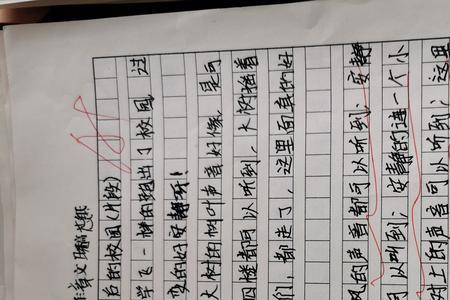 后的校园(片段)
学飞一样的跑出了校园 过
变的好安静呀!
大树的树叶声音好像 是可
四楼都可以听到,大树
们,都走了,这里面真的好
风的声音都可以听到,安静
可以听到,安静的连一个小
上的声音可以听到;这里